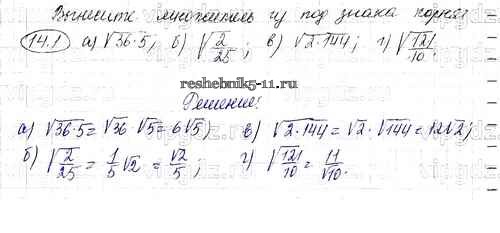 Вынесите множитель из под знака корня
14.1 а) √36·5; б) √2/25; в) √2·144; г) √121/10.
reshebnik5-11.ru
Решение:
а) √36·5 = √36·√5 = 6√5; в) √2·144 = √2·√144 = 12√2;
б) √2/25 = 1/5 √2 = √2/5; г) √121/10 = 11/√10.